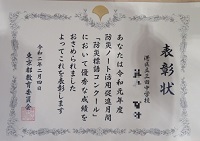 表彰状
港区立三田中学校
あなたは令和元年度
防災ノート活用促進月間
「防災標語コンクール」
において優秀な成績を
おさめられました
よってこれを表彰します
令和二年二月四日
東京都教育委員会